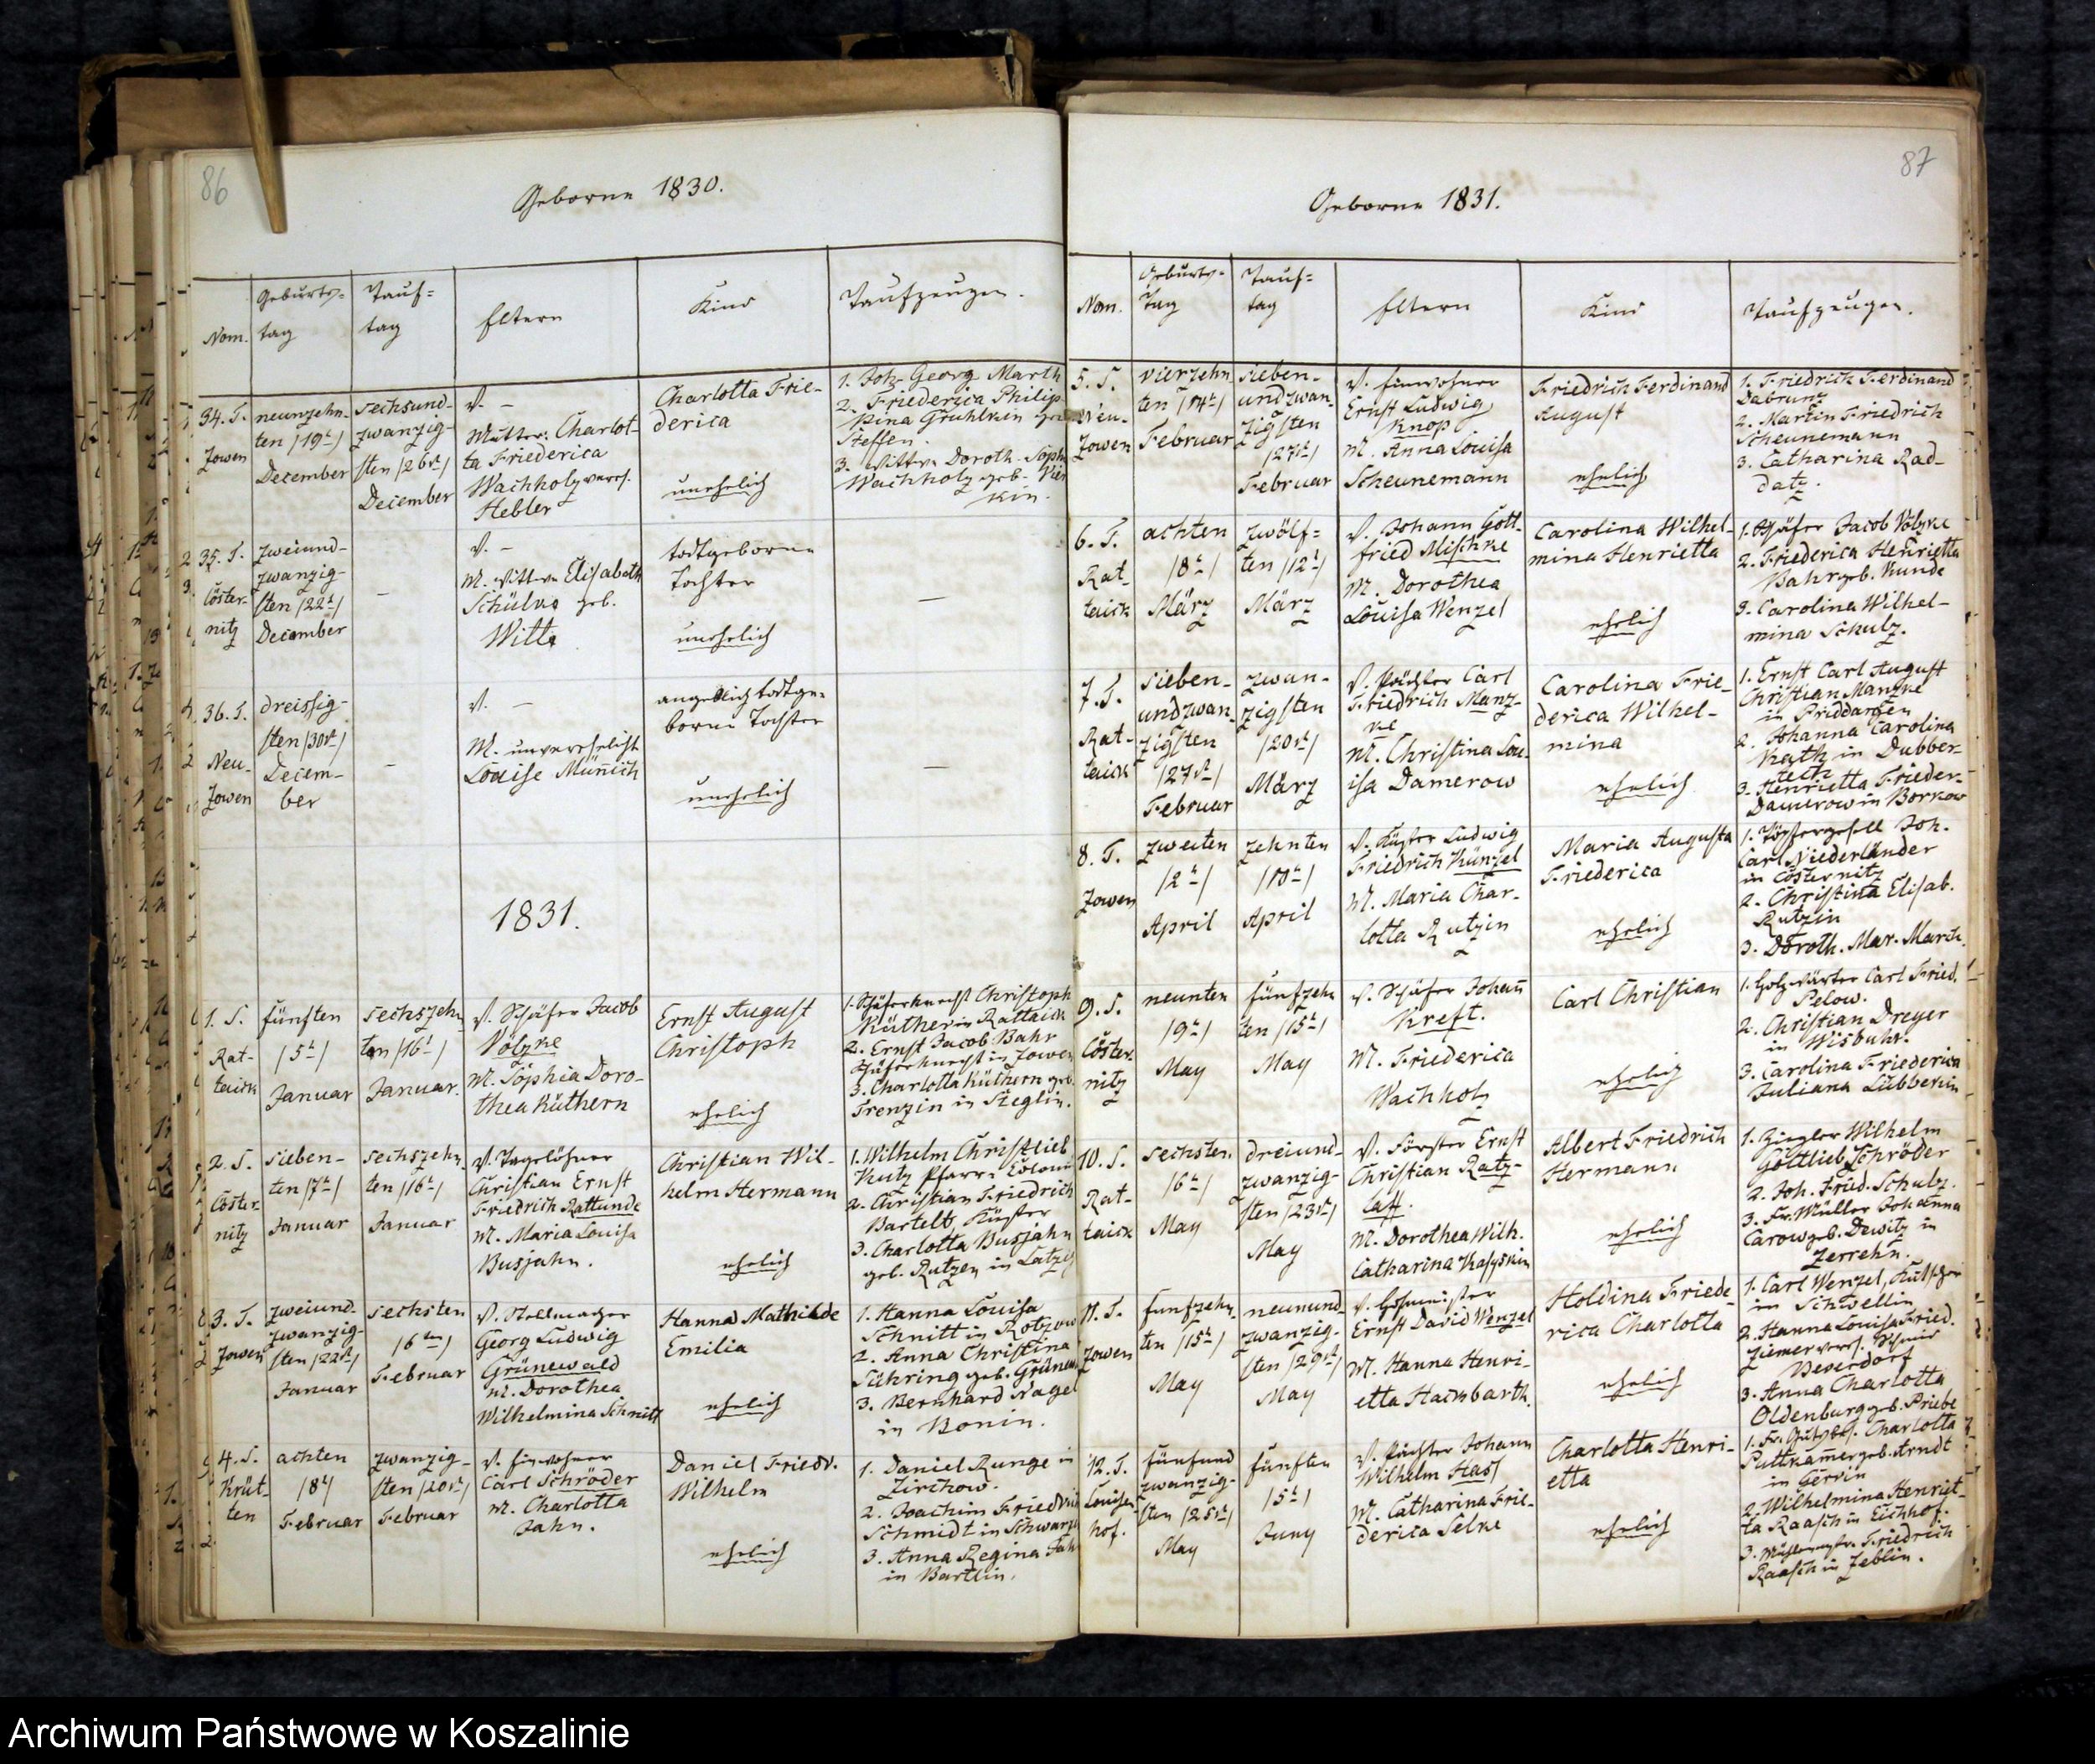 86
Geborne 1830.
Nom.
Geburts-
tag
Tauf=
tag
Eltern
Kind
Taufzeugen.
34. T.
Zowen
neunzehn-
ten /19t/
December
sechsund-
zwanzig-
sten /26st/
December
V. —
Mutter: Charlot-
ta Friederica
Wachholz veres.
Hebler
Charlotta Frie-
derica
unehelich
1. Joh. Georg Marth
2. Friederica Philip-
Steffen.
3. Wittwe Doroth. Soph
Wachholz geb.
35. T.
Cöster-
nitz
zweiund-
zwanzig-
sten /22t/
December
—
V. —
M. Wittwe Elisabeth
Schülke geb.
Witte
todtgeborne
Tochter
unehelich
—
36. T.
Neu-
Zowen
dreissig-
sten /30st/
Decem-
ber
—
V. —
M. unverehelicht
Louise Münich
angeblich todtge-
borne Tochter
unehelich
—
1831.
1. S.
Rat-
taick
fünften
/5t/
Januar
sechszehn
ten /16t/
Januar.
V. Schäfer Jacob
Völzke
M. Sophia Doro-
thea Küthern
Ernst August
Christoph
ehelich
1. Schäferknecht Christoph
Küther in Rattaick
2. Ernst Jacob Bahr
Schäferknecht in Zowen
3. Charlotta Küthern geb.
Frenzin in Steglin.
2. S.
Cöster-
nitz
sieben-
ten /7t/
Januar
sechszehn
ten /16t/
Januar
V. Tagelöhner
Christian Ernst
Friedrich Rattunde
M. Maria Louisa
Busjahn.
Christian Wil-
helm Hermann
ehelich
1. Wilhelm Christlieb
Kutz Pfarr-
2. Christian Friedrich
Bartelt, Küster
3. Charlotta Busjahn
geb. Rutzen in Latzig
3. T.
Zowen
zweiund-
zwanzig-
sten /22st/
Januar
sechsten
/6ten/
Februar
V. Stellmacher
Georg Ludwig
Grünewald
M. Dorothea
Wilhelmina Schnitt
Hanna Mathilde
Emilia
ehelich
1. Hanna Louisa
Schnitt in Rotzow
2. Anna Christina
Sühring geb. Grünew
3. Bernhard Nagel
in Bonin.
4. S.
Krüt-
ten
achten
/8t/
Februar
zwanzig-
sten /20st/
Februar
V. Einwohner
Carl Schröder
M. Charlotta
Jahn.
Daniel Friedr.
Wilhelm
ehelich
1. Daniel Runge in
Zirchow.
2. Joachim Friedrich
Schmidt in Schwarz
3. Anna Regina Jah
in Bartlin.
87
Geborne 1831.
Nom.
Geburts-
Tag
Tauf=
tag
Eltern
Kind
Taufzeugen.
5. S.
Neu-
Zowen
vierzehn
ten /14t/
Februar
sieben-
undzwan-
zigsten
/27st/
Februar
V. Einwohner
Ernst Ludwig
Knop
M. Anna Louisa
Scheunemann
Friedrich Ferdinand
August
ehelich
1. Friedrich Ferdinand
Dabrunz
2. Martin Friedrich
Scheunemann
3. Catharina Rad-
datz.
6. T.
Rat-
taick
achten
/8t/
März
zwölf=
ten /12t/
März
V. Johann Gott-
fried Mischke
M. Dorothea
Louisa Wenzel
Carolina Wilhel-
mina Henrietta
ehelich
1. Schäfer Jacob Völzke
2. Friederica Henrietta
Bahr geb. Kunde
3. Carolina Wilhel-
mina Schulz.
7. T.
Rat-
taick
sieben-
undzwan-
zigsten
/27st/
Februar
zwan-
zigsten
/20st/
März
V. Pächter Carl
Friedrich Manz-
ke
M. Christina Lou-
isa Damerow
Carolina Frie-
derica Wilhel-
mina
ehelich
1. Ernst Carl August
Christian Manzke
in Priddargen
2. Johanna Carolina
Kath in Dubber-
tech
3. Henrietta Frieder.
Damerow in Borkow
8. T.
Zowen
zweiten
/2t/
April
zehnten
/10t/
April
V. Küster Ludwig
Friedrich Künzel
M. Maria Char-
lotta Rutzin
Maria Augusta
Friederica
ehelich
1. Töpfergesell Joh.
Carl Niederländer
in Cösternitz
2. Christina Elisab.
Rutzin
3. Doroth. Mar. March.
9. S.
Cöster-
nitz
neunten
/9t/
May
fünfzehn
ten /15t/
May
V. Schäfer Johann
Kreft.
M. Friederica
Wachholz
Carl Christian
ehelich
1. Holzwärter Carl Fried.
Pelow.
2. Christian Dreyer
in Wisbuhr.
3. Carolina Friederica
Juliana Lübberin
10. S.
Rat-
taick
sechsten
/6t/
May
dreiund-
zwanzig-
sten /23st/
May
V. Förster Ernst
Christian Ratz-
laff.
M. Dorothea Wilh.
Catharina
Albert Friedrich
Hermann
ehelich
1. Ziegler Wilhelm
Gottlieb Schröder
2. Joh. Fried. Schulz.
3. Fr. Müller Johanna
Carow geb. Dewitz in
Zerrehn.
11. T.
Zowen
funfzehn-
ten /15t/
May
neunund-
zwanzig-
sten /29st/
May
V. Hofmeister
Ernst David Wenzel
M. Hanna Henri-
etta Hackbarth.
Holdina Friede-
rica Charlotta
ehelich
1. Carl Wenzel, Kutscher
in Schwellin
2. Hanna Louisa Fried.
Ziemer veres. Schmid
Beserdorf
3. Anna Charlotta
Oldenburg geb. Priebe
12. T.
Louisen-
hof.
fünfund
zwanzig-
sten /25st/
May
fünften
/5t/
Juny
V. Pächter Johann
Wilhelm Hass
M. Catharina Frie-
derica Selke
Charlotta Henri-
etta
ehelich
1. Fr. Gutsbes. Charlotta
Puttkammer geb. Arndt
in Gervin
2. Wilhelmina Henriet-
ta Raasch in Eichhof.
3. Mühlenmstr. Friedrich
Raasch in Zeblin.
Archiwum Państwowe w Koszalinie